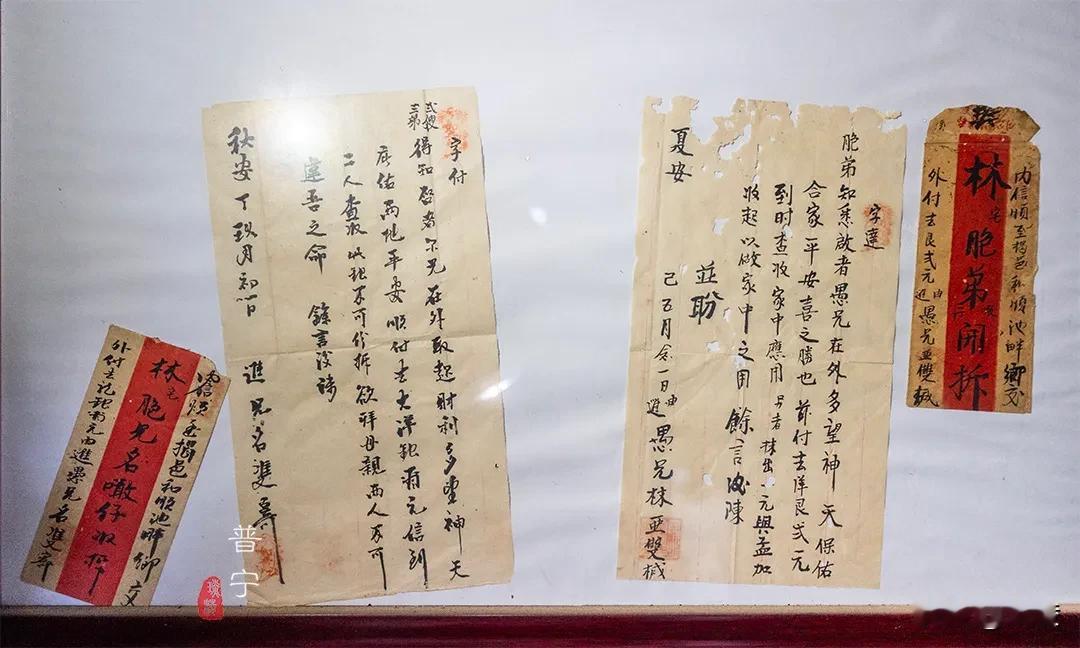 内信順至揭邑和順池畔鄉交
林宅胞弟開拆
外付去艮弍元 由進愚兄亞雙緘
字達
胞弟知悉啟者愚兄在外多望神天保佑
合家平安喜之勝也 前付去洋艮弍元
到时查收家中應用 另者抹出一元與孟加
收起以做家中之用 餘言後陳
並聆
夏安
己五月念一日由進愚兄林亞雙緘
字付
得知啓者尔兄在外取起財利多望神天
庇佑兩地平安順付去大洋銀兩元信到
二人查收
親兩人不可
達吾之命 餘言後詳
秋安 丁玖月初
進兄名雙寄
內信煩至揭邑和順池畔鄉交
林宅胞兄名噉仔收拆
外付去
銀兩元由進愚兄名雙寄
普宁